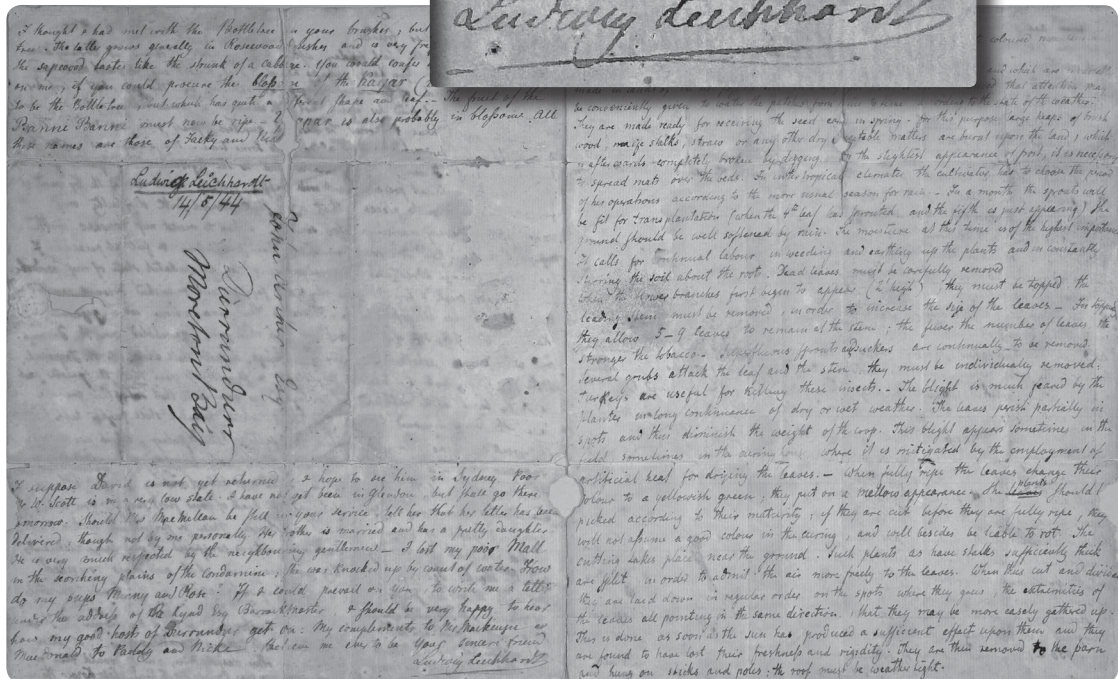 Ludwig Leichhardt
I thought I had met with the Bottletree in your brushes, but
tree. The latter grows generally in Rosewood bushes and is very
the sapwood tastes like the strunk of a cabbage. You could confer
on me, if you could procure the bloss
to be the Bottletree, but which has quite a leaf -- The fruit of the
Bunnie Bunnie must now be ripe - is also probably in blossome. All
these names are those of Jacky and
Ludwig Leichhardt
14/5/44
John Archer Esq
Durrundurr
Moreton Bay
I suppose David is not yet returned I hope to see him in Sydney Poor
W. Scott is in a very low state. I have not yet been in Glendon, but shall go there
tomorrow. Should Mrs MacMillan be still in your service, tell her that her letter has been
delivered, though not by me personally. Her brother is married and has a pretty daughter.
He is very much respected by the neighbouring gentlemen - I lost my poor Mall
in the scorching plains of the Condamine; she was knocked up by want of water. How
do my pups Merry and Rose. If I could prevail on you, to write me a letter
under the address of Lynd Esq Barrackmaster I should be very happy to hear
how my good hosts of Durrundur get on. My complements to Mr Mackenzie
MacDonald to Paddy and believe me ever to be Your sincere friend
Ludwig Leichhardt
and which are
that attention may
be conveniently given to according to the state of the weather.
They are made ready for receiving the seed early in spring. For this purpose large heaps of brush
wood, maize stalks, straw or any other dry vegetable matters are burnt upon the land, which
is afterwards completely broken by digging. the slightest appearance of frost, it is necessary
to spread mats over the beds. In the tropical climates the cultivator has to choose the period
of his operations according to the more usual season for rain. In a month the sprouts will
be fit for transplantation (when the 4th leaf has sprouted and the fifth is just appearing) The
ground should be well softened by rain. The moisture at this time is of the highest importance
It calls for continual labour in weeding and earthing up the plants and in constantly
stirring the soil about the roots. Dead leaves must be carefully removed
When the flower branches first begin to appear (2' high) they must be topped the
leading stem must be removed, in order to increase the size of the leaves - In topping
they allow 5-9 leaves to remain at the stem; the fewer the number of leaves the
stronger the tobacco - Superfluous sprouts and suckers are continually to be removed.
Several grubs attack the leaf and the stem, they must be individually removed.
Turkeys are useful for killing these insects. - The blight is much feared by the
planter in long continuance of dry or wet weather. The leaves perish partially in
spots and thus diminish the weight of the crop. This blight appears sometimes in the
field sometimes in the curing where it is mitigated by the employment of
artificial heat for drying the leaves. - When fully ripe the leaves change their
colour to a yellowish green, they put on a mellow appearance. The plants should
picked according to their maturity, if they are cut before they are fully ripe, they
will not assume a good colour in the curing, and will besides be liable to rot. The
cutting takes place near the ground. Such plants as have stalks sufficiently thick
are split in order to admit the air more freely to the leaves. When thus cut and divided
they are laid down in regular order on the spots where they grew the extremities of
the leaves all pointing in the same direction, that they may be more easely gathered up.
This is done as soon as the sun has produced a sufficient effect upon them and they
are found to have lost their freshness and rigidity. They are then removed to the barn
and hung on sticks and poles; the roof must be weather tight.